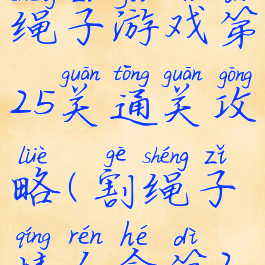 绳子游戏第
guān tōng guān gōng
25关通关攻
lüè gē shéng zǐ
略(割绳子
qíng rén hé dì